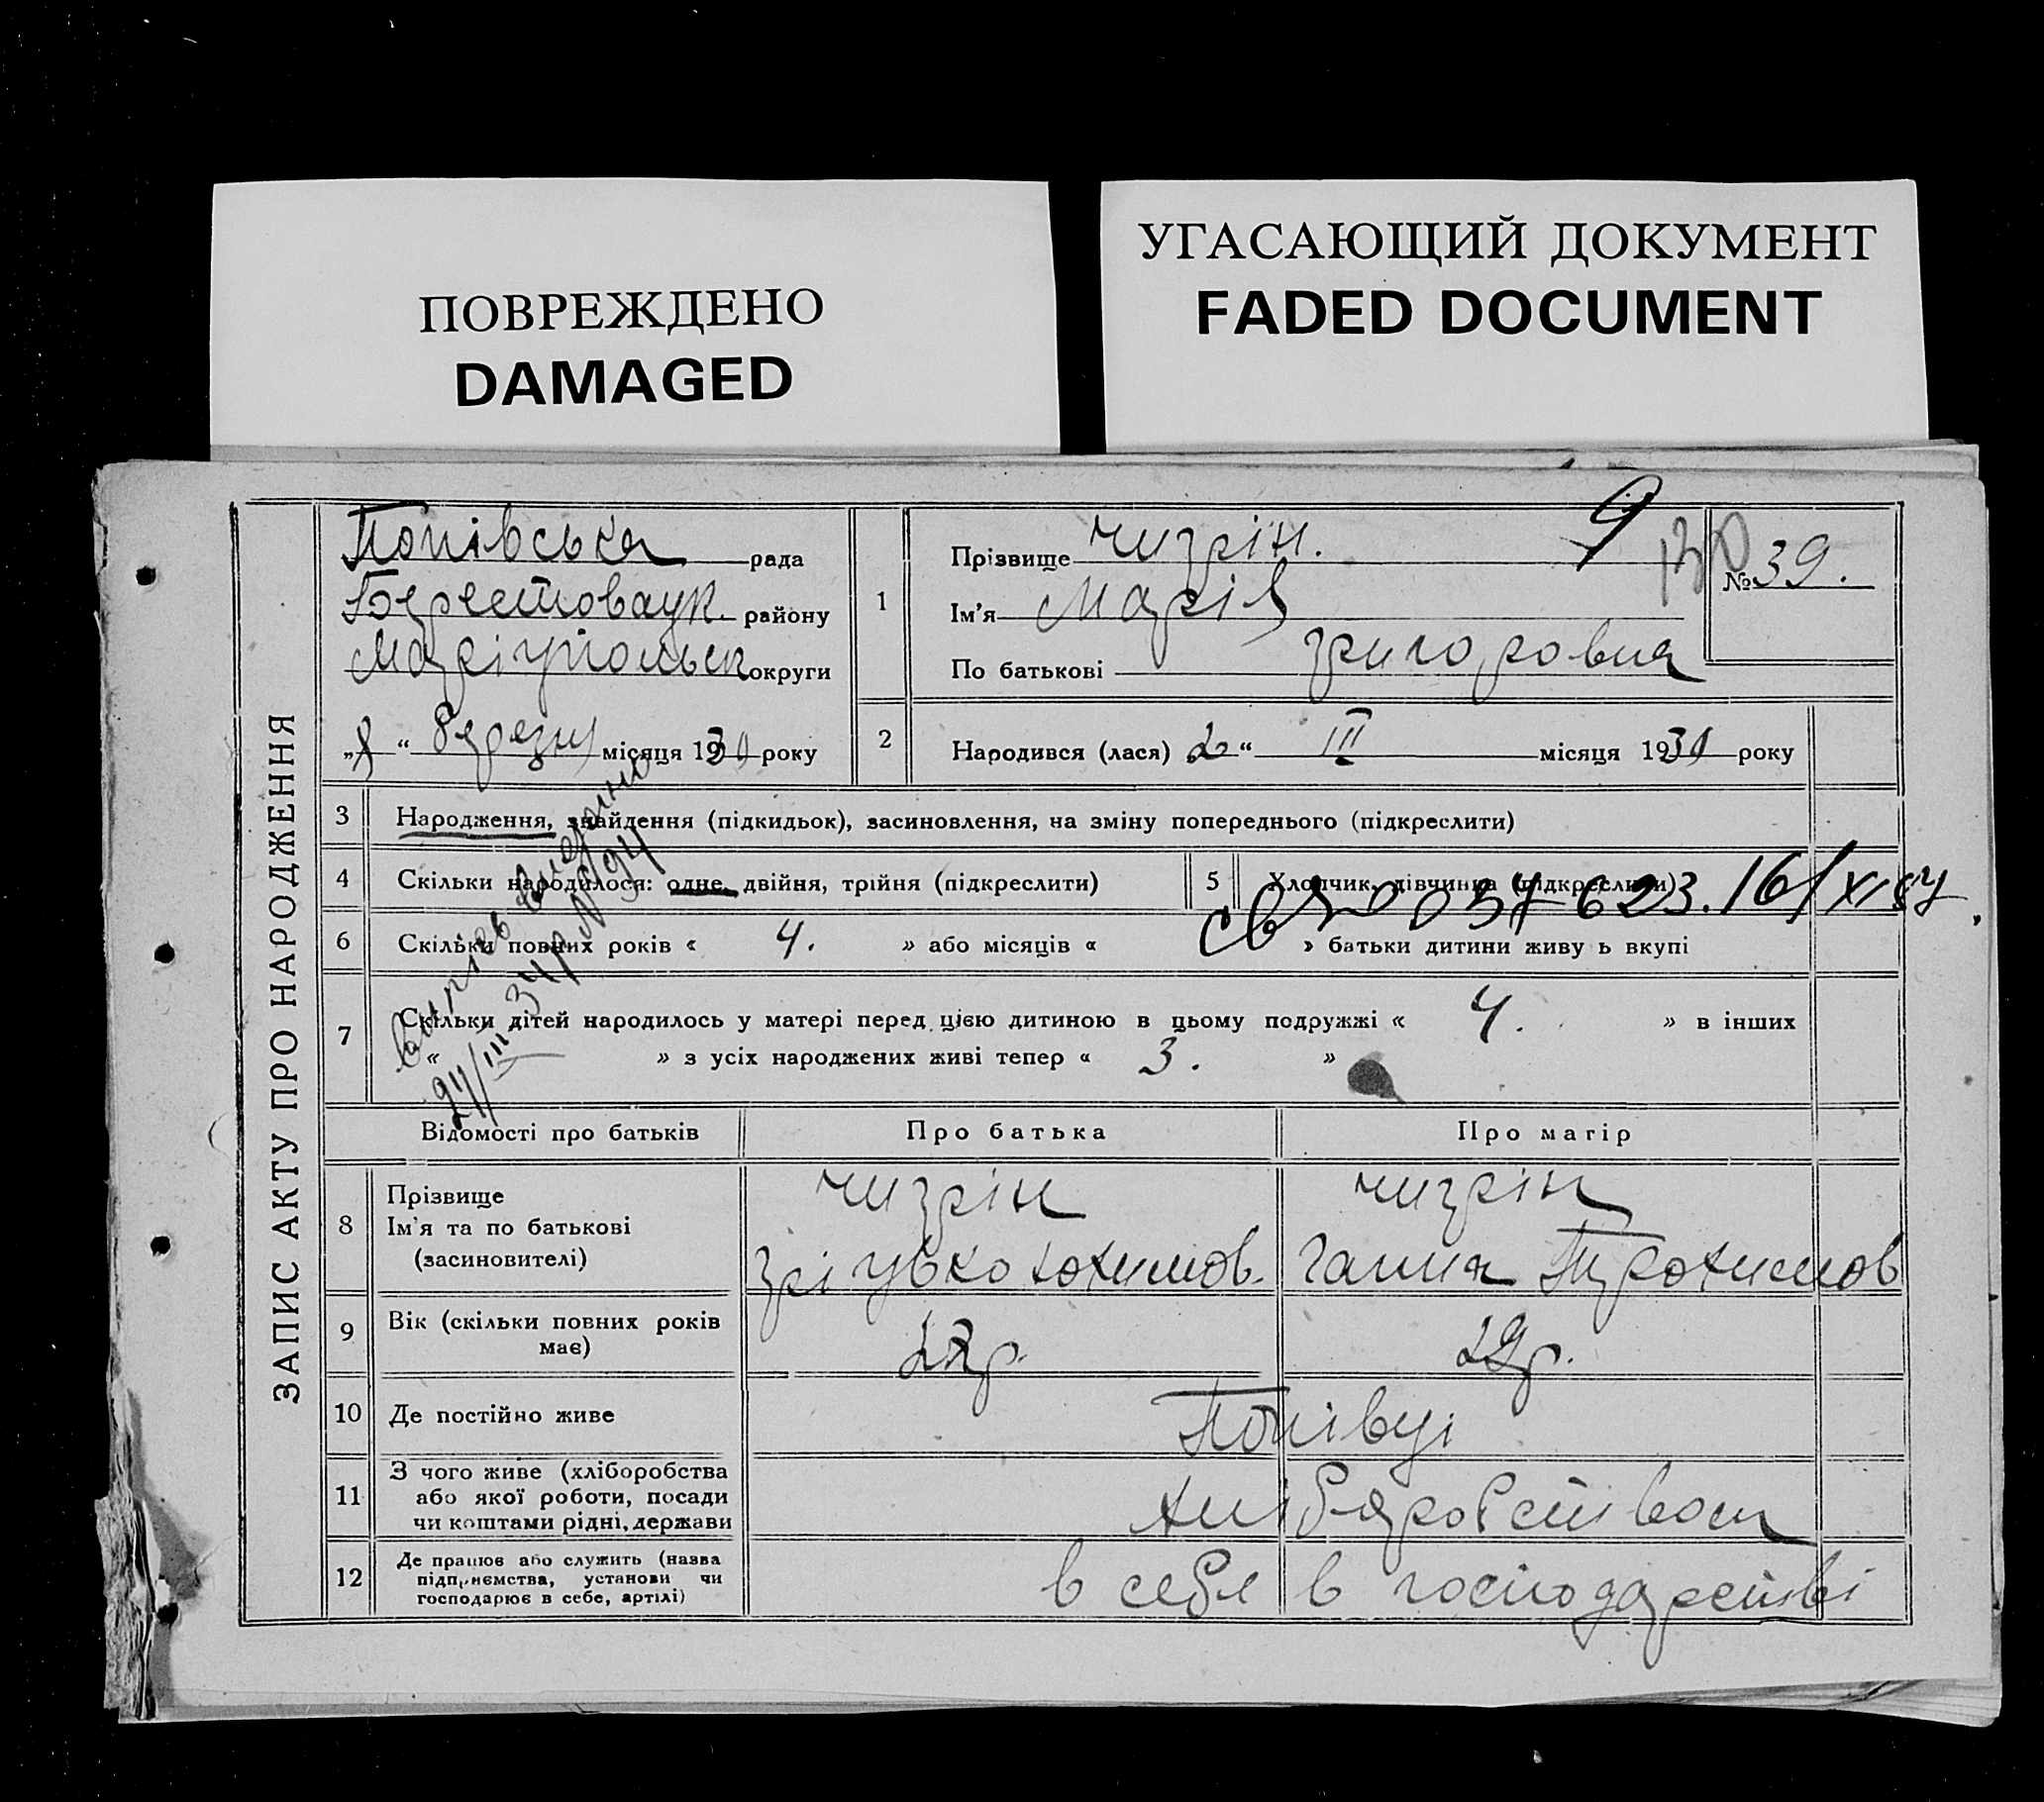 ПОВРЕЖДЕНО
DAMAGED
УГАСАЮЩИЙ ДОКУМЕНТ
FADED DOCUMENT
ЗАПИС АКТУ ПРО НАРОДЖЕННЯ
Попівська рада
району
округи
„8“ березня місяця 1930 року
1
Прізвище Чигрін.
Ім'я Марія
По батькові Григоровна
9
№ 39.
2
Народився (лася) 2“ III місяця 1930 року
3 Народження, знайдення (підкидьок), засиновлення, на зміну попереднього (підкреслити)
4 Скільки народилося: одне, двійня, трійня (підкреслити)
5 Хлопчик, дівчинка (підкреслити)
037623. 16/XI
6 Скільки повних років « 4. » або місяців « » батьки дитини живу ь вкупі
7 Скільки дітей народилось у матері перед цією дитиною в цьому подружжі « 4. » в інших
« » з усіх народжених живі тепер « 3. »
Відомості про батьків
Про батька
Про матір
8 Прізвище
Ім'я та по батькові
(засиновителі)
Чигрін
Чигрін
Ганна Трохимов
9 Вік (скільки повних років
має)
29р.
10 Де постійно живе
Попівці
11 З чого живе (хліборобства
або якої роботи, посади
чи коштами рідні, держави
хліборобством
12 Де працює або служить (назва
підприємства, установи чи
господарює в себе, артілі)
в себе в господарстві